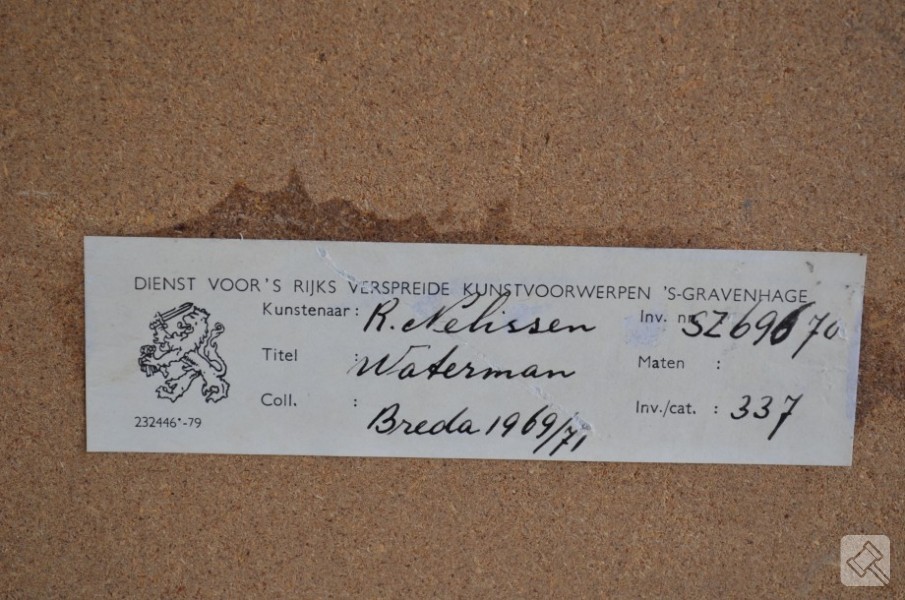 DIENST VOOR'S RIJKS VERSPREIDE KUNSTVOORWERPEN 'S-GRAVENHAGE
Kunstenaar: R. Nelissen Inv. nr. SZ69670
Titel : Waterman Maten :
Coll. : Breda 1969/71 Inv./cat. : 337
232446*-79